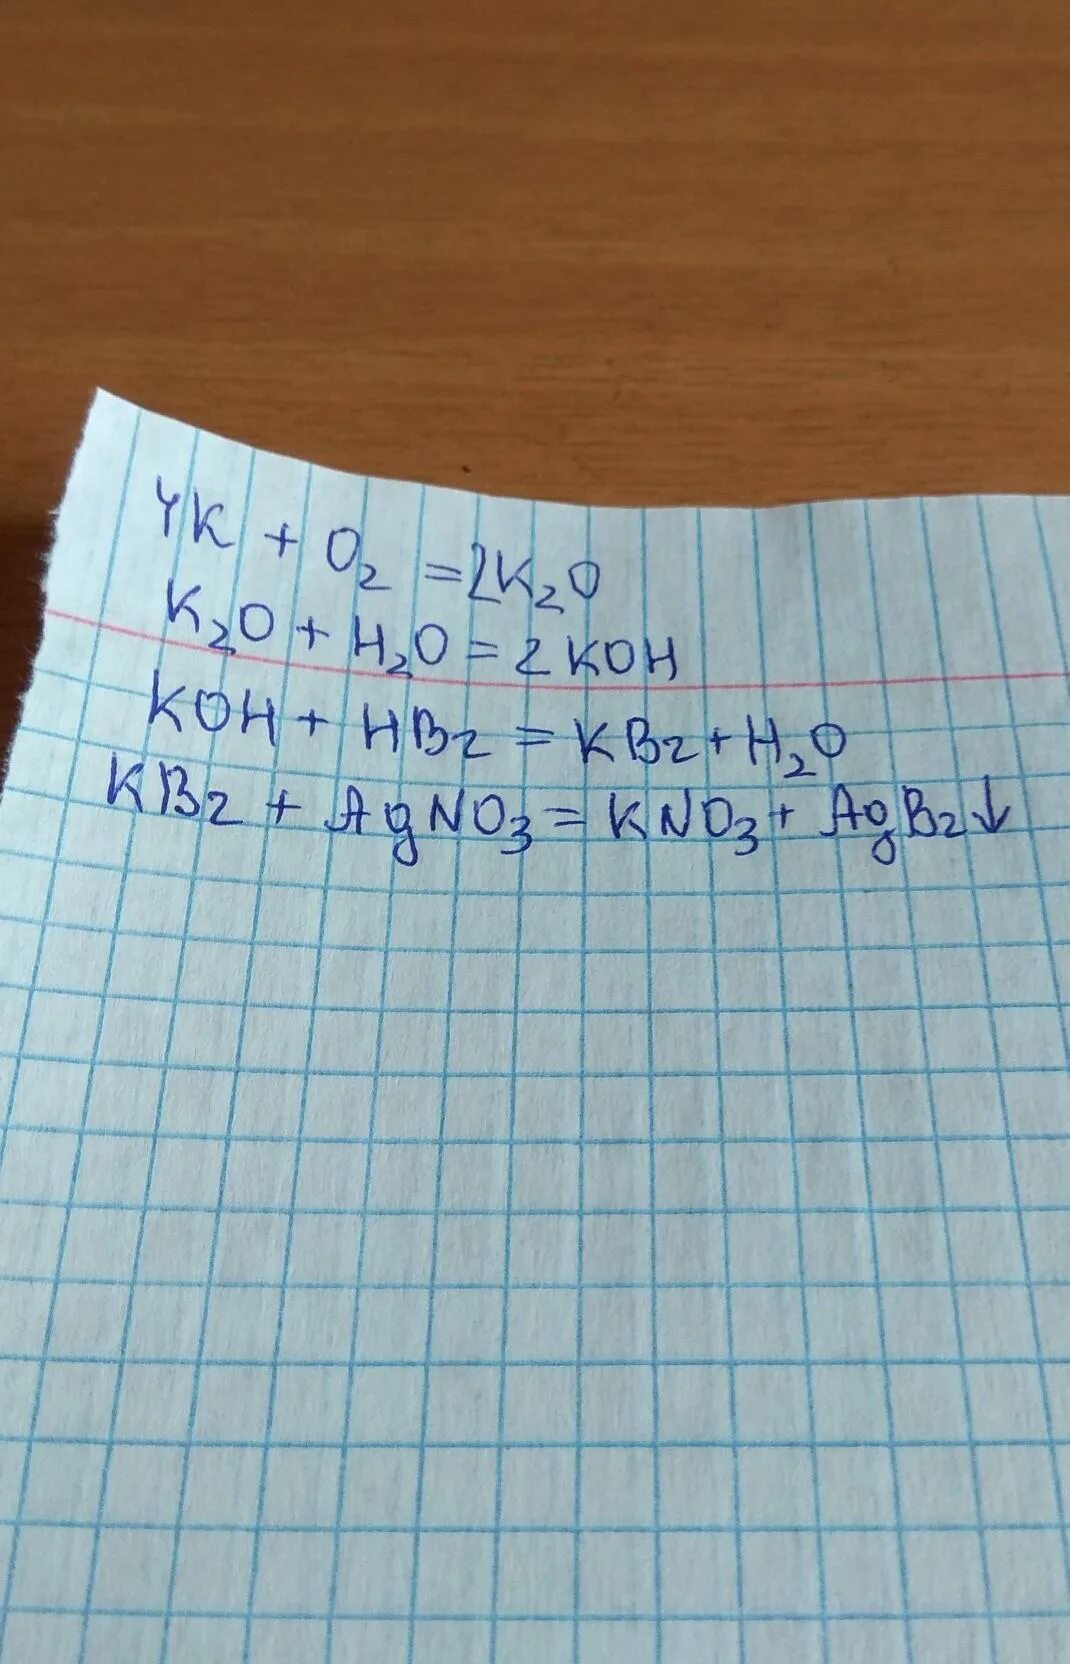 4K + O₂ = 2K₂O
K₂O + H₂O = 2KOH
KOH + HBr = KBr + H₂O
KBr + AgNO₃ = KNO₃ + AgBr↓